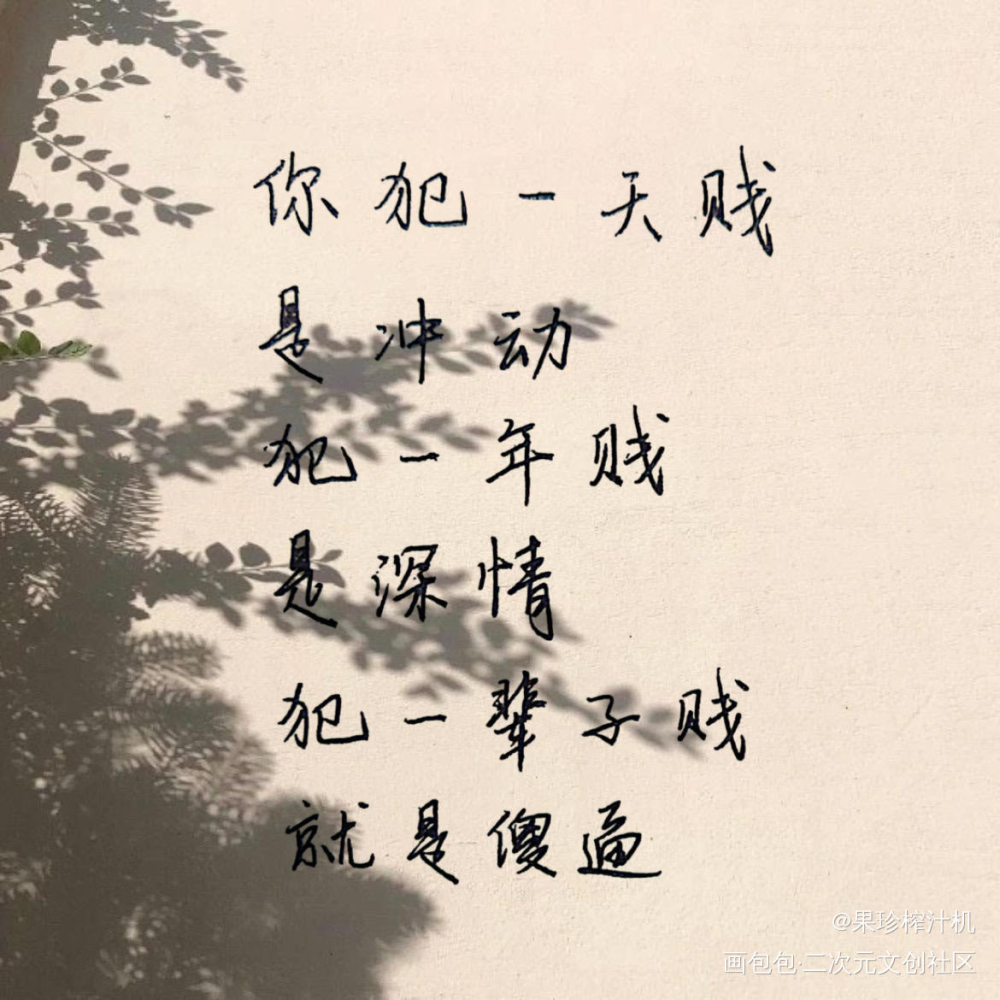 你犯一天贱
是冲动
犯一年贱
是深情
犯一辈子贱
就是傻逼
@果珍榨汁机
画包包·二次元文创社区